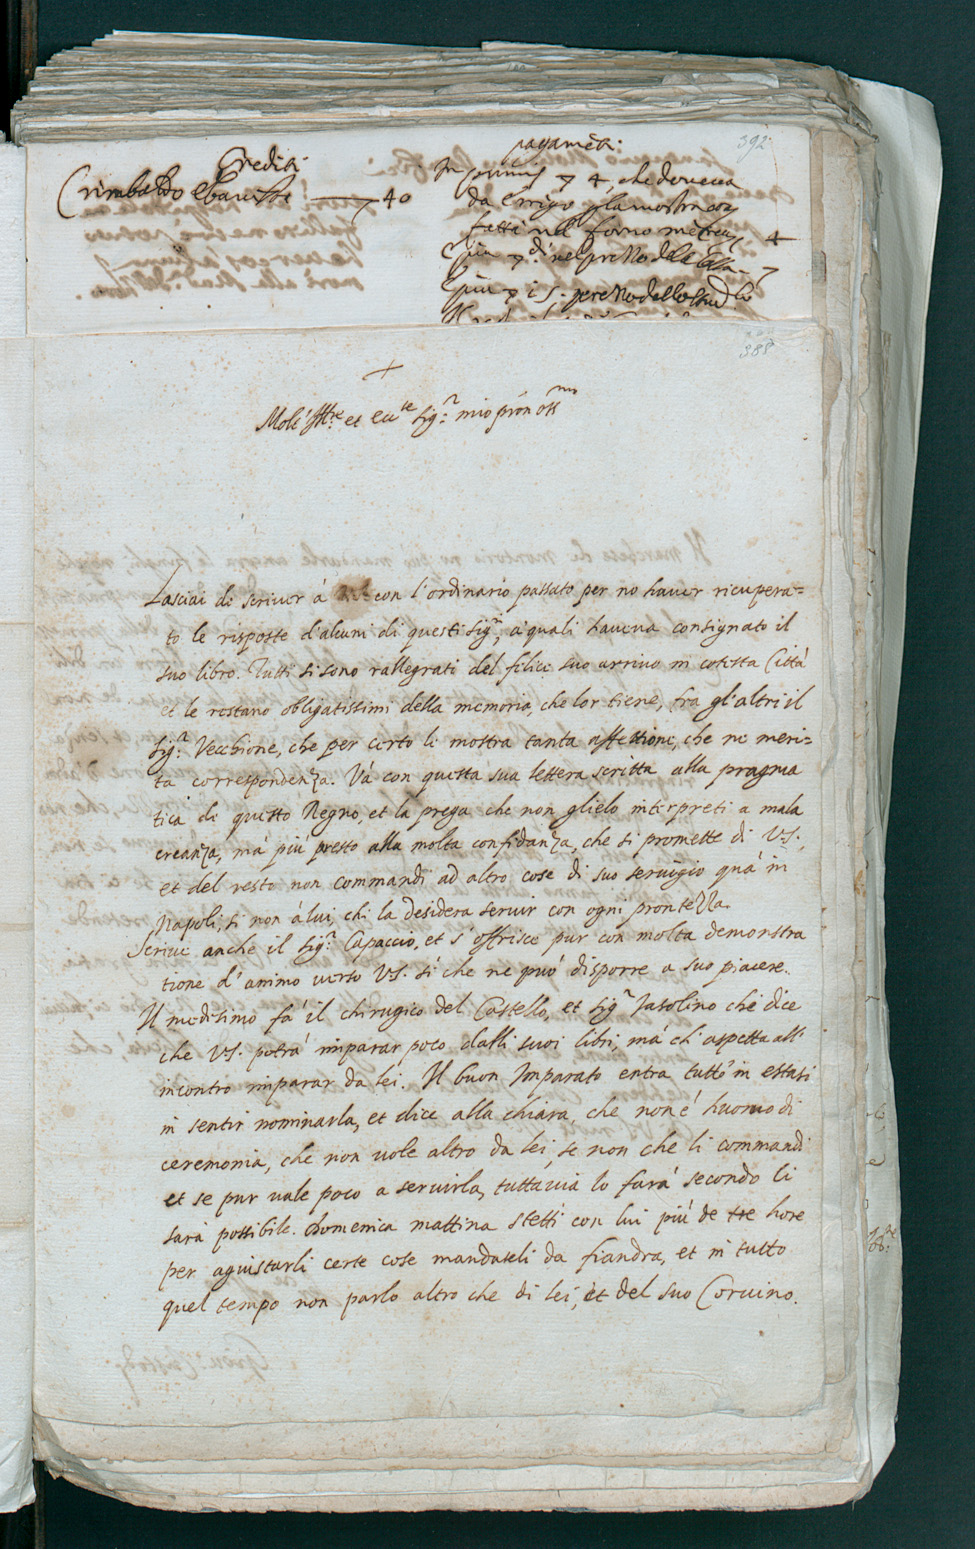 392
Crediti
40
pagamēti:
In primis 4 che doveva
da Errigo
fatti nel forno
4
388
+
Molt' Ill.re et ecc.te Sig.r mio prōn oss.mo
Lasciai di scriver á con l'ordinario passato per no haver ricupera=
to le risposte d'alcuni di questi Sig.ri, a' quali haveva consignato il
suo libro. Tutti si sono rallegrati del felice suo arrivo in cotesta Cittá
et le restano obligatissimi della memoria, che lor tiene, fra gl'altri il
Sig.r Vecchione, che per certo li mostra tanta affettione, che ne meri=
ta correspondenza. Vá con questa sua lettera scritta alla pragma
tica di questo Regno, et la prega che non glielo interpreti a mala
creanza, má piú presto alla molta confidanza, che si promette di V.S.,
et del resto non commandi ad altro cose di suo servigio quá in
Napoli, si non á lui, chi la desidera servir con ogni prontezza.
Scrive anche il Sig.r Capaccio, et s'offrisce pur con molta demonstra
tione d'animo verso V.S. sí che ne puó disporre a suo piacere.
Il medisimo fá il chirugico del Castello, et Sig.r Jasolino che dice
che V.S. potrá imparar poco dalli suoi libri, má ch'aspetta all'
incontro imparar da lei. Il buon Imparato entra tutto in estasi
in sentir nominarla, et dice alla chiara, che non é huomo di
ceremonia, che non vole altro da lei, se non che li commandi
et se pur vale poco a servirla, tuttavia lo fará secondo li
sará possibile. Domenica mattina stetti con lui piú de tre hore
per aguistarli certe cose mandateli da fiandra, et in tutto
quel tempo non parlo altro che di lei, et del suo Corvino.